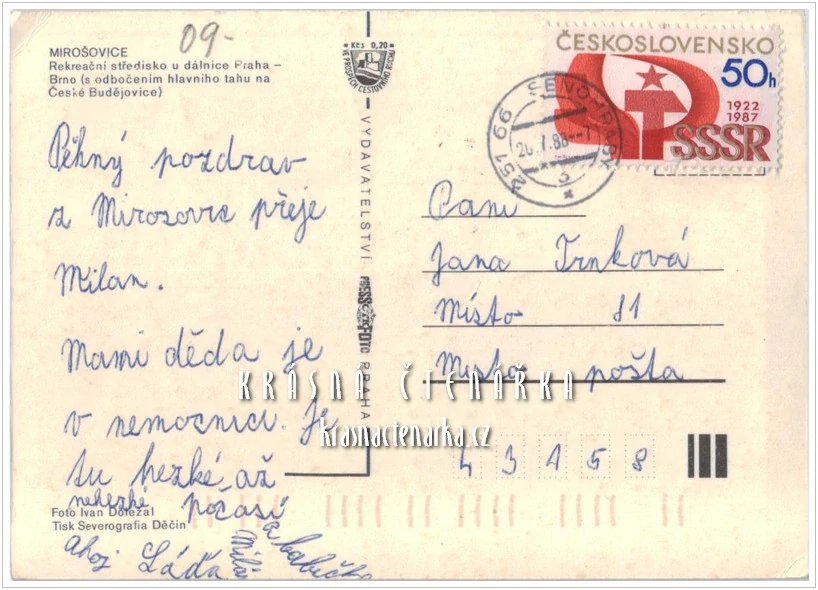 09-
MIROŠOVICE
Rekreační středisko u dálnice Praha –
Brno (s odbočením hlavního tahu na
České Budějovice)
Kčs 0,20
VE PROSPĚCH CESTOVNÍHO RUCHU
ČESKOSLOVENSKO
50h
1922
1987
SSSR
251 66 SENOHRABY
Pěhný pozdrav
z Mirozovic přeje
Milan.
Mami děda je
v nemocnici. Je
tu hezké až
nehezké počasí
ahoj Láďa
Milan
a babička
VYDAVATELSTVÍ PRESSFOTO PRAHA
Paní
Jana Trnková
Místo 81
Místo pošta
43158
Foto Ivan Doležal
Tisk Severografia Děčín
KRÁSNÁ ČTENÁŘKA
krasnactenarka.cz